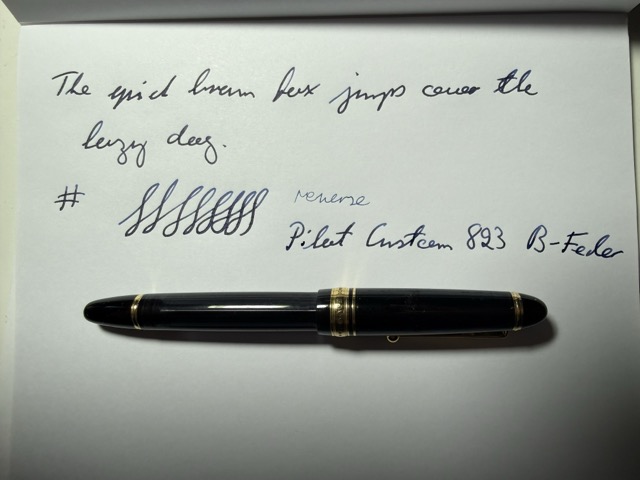 The quick brown fox jumps over the
lazy dog.
#
reverse
Pilot Custom 823 B-Feder